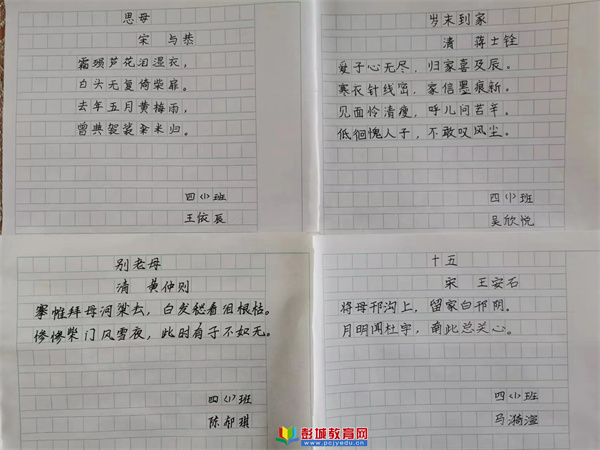 思母
宋 与恭
霜殒芦花泪湿衣，
白头无复倚柴扉。
去年五月黄梅雨，
曾典袈裟籴米归。
四(1)班
王依辰
岁末到家
清 蒋士铨
爱子心无尽，归家喜及辰。
寒衣针线密，家信墨痕新。
见面怜清瘦，呼儿问苦辛。
低徊愧人子，不敢叹风尘。
四(1)班
吴欣悦
别老母
清 黄仲则
搴帷拜母河梁去，白发愁看泪眼枯。
惨惨柴门风雪夜，此时有子不如无。
四(1)班
陈郁琪
十五
宋 王安石
将母邗沟上，留家白邗阴。
月明闻杜宇，南北总关心。
四(1)班
马漪
彭城教育网
www.pcjyedu.cn